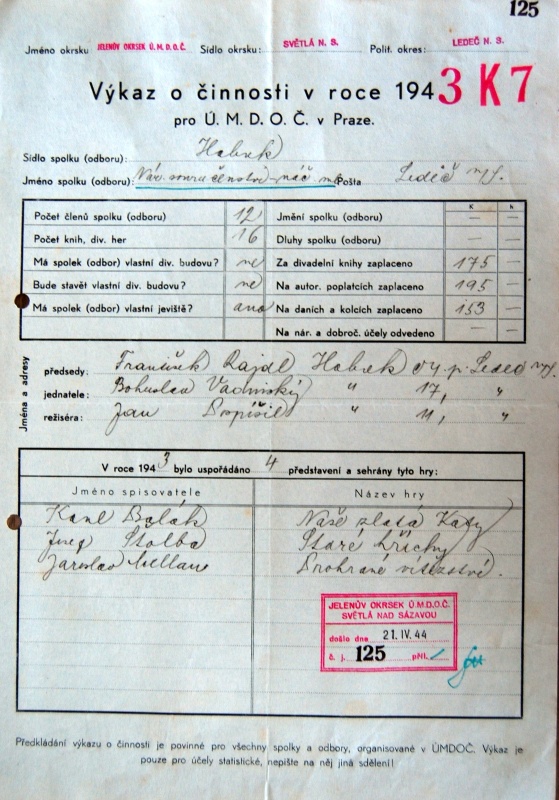 125
Jméno okrsku JELENŮV OKRSEK Ú.M.D.O.Č. Sídlo okrsku: SVĚTLÁ N. S. Polit. okres: LEDEČ N. S.
Výkaz o činnosti v roce 1943 K 7
pro Ú. M. D. O. Č. v Praze.
Sídlo spolku (odboru): Habrek
Jméno spolku (odboru): Nár. souručenství - Pošta Ledeč n/S.
K h
Počet členů spolku (odboru) 12 Jmění spolku (odboru) — —
Počet knih, div. her 16 Dluhy spolku (odboru) — —
Má spolek (odbor) vlastní div. budovu? ne Za divadelní knihy zaplaceno 175 —
Bude stavět vlastní div. budovu? ne Na autor. poplatcích zaplaceno 195 —
Má spolek (odbor) vlastní jeviště? ano Na daních a kolcích zaplaceno 153 —
Na nár. a dobroč. účely odvedeno — —
Jména a adresy
předsedy: František Rajdl Habrek p. Ledeč n/S.
jednatele: Bohuslav " 17, "
režiséra: Jan Pospíšil " 11, "
V roce 1943 bylo uspořádáno 4 představení a sehrány tyto hry:
Jméno spisovatele Název hry
Karel Balák Naše zlatá Katy
Josef Štolba Staré hříchy
Jaroslav Prohrané vítězství.
JELENŮV OKRSEK Ú.M.D.O.Č.
SVĚTLÁ NAD SÁZAVOU
došlo dne 21. IV. 44
č. j. 125 příl.
Předkládání výkazu o činnosti je povinné pro všechny spolky a odbory, organisované v ÚMDOČ. Výkaz je
pouze pro účely statistické, nepište na něj jiná sdělení!